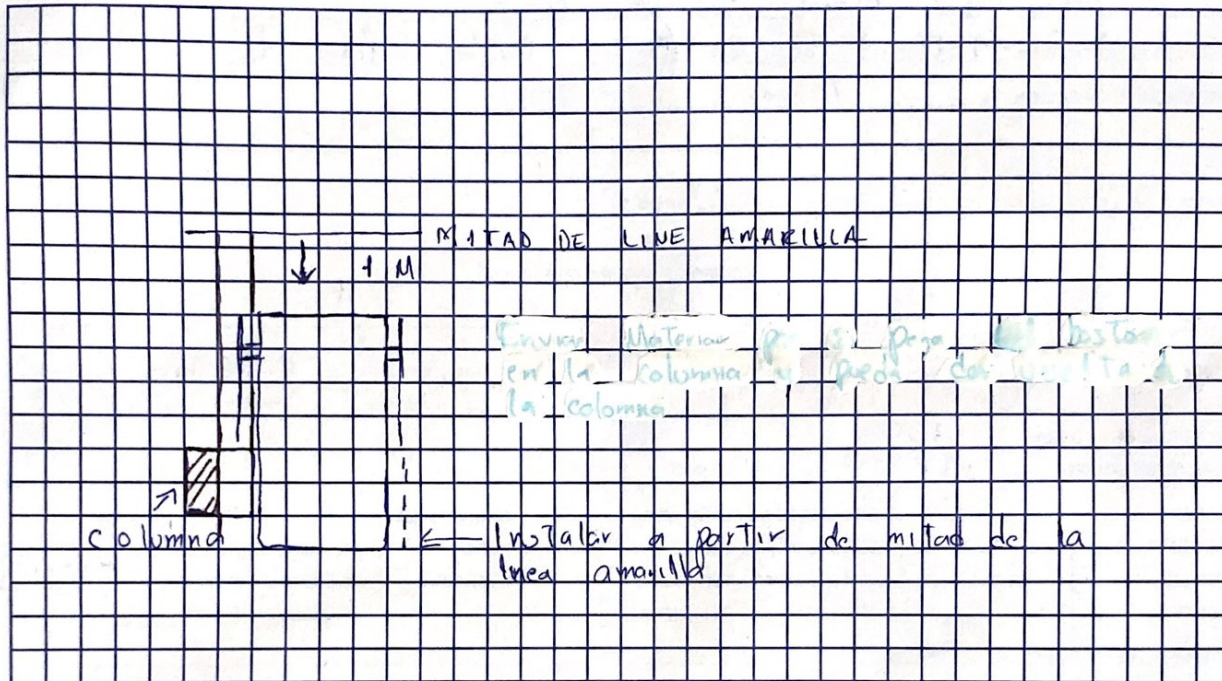 MITAD DE LINE AMARILLA
1 M
Material si pega
en la columna y pueda dar vuelta
la colomna
columna
Instalar a partir de mitad de la
linea amarilla